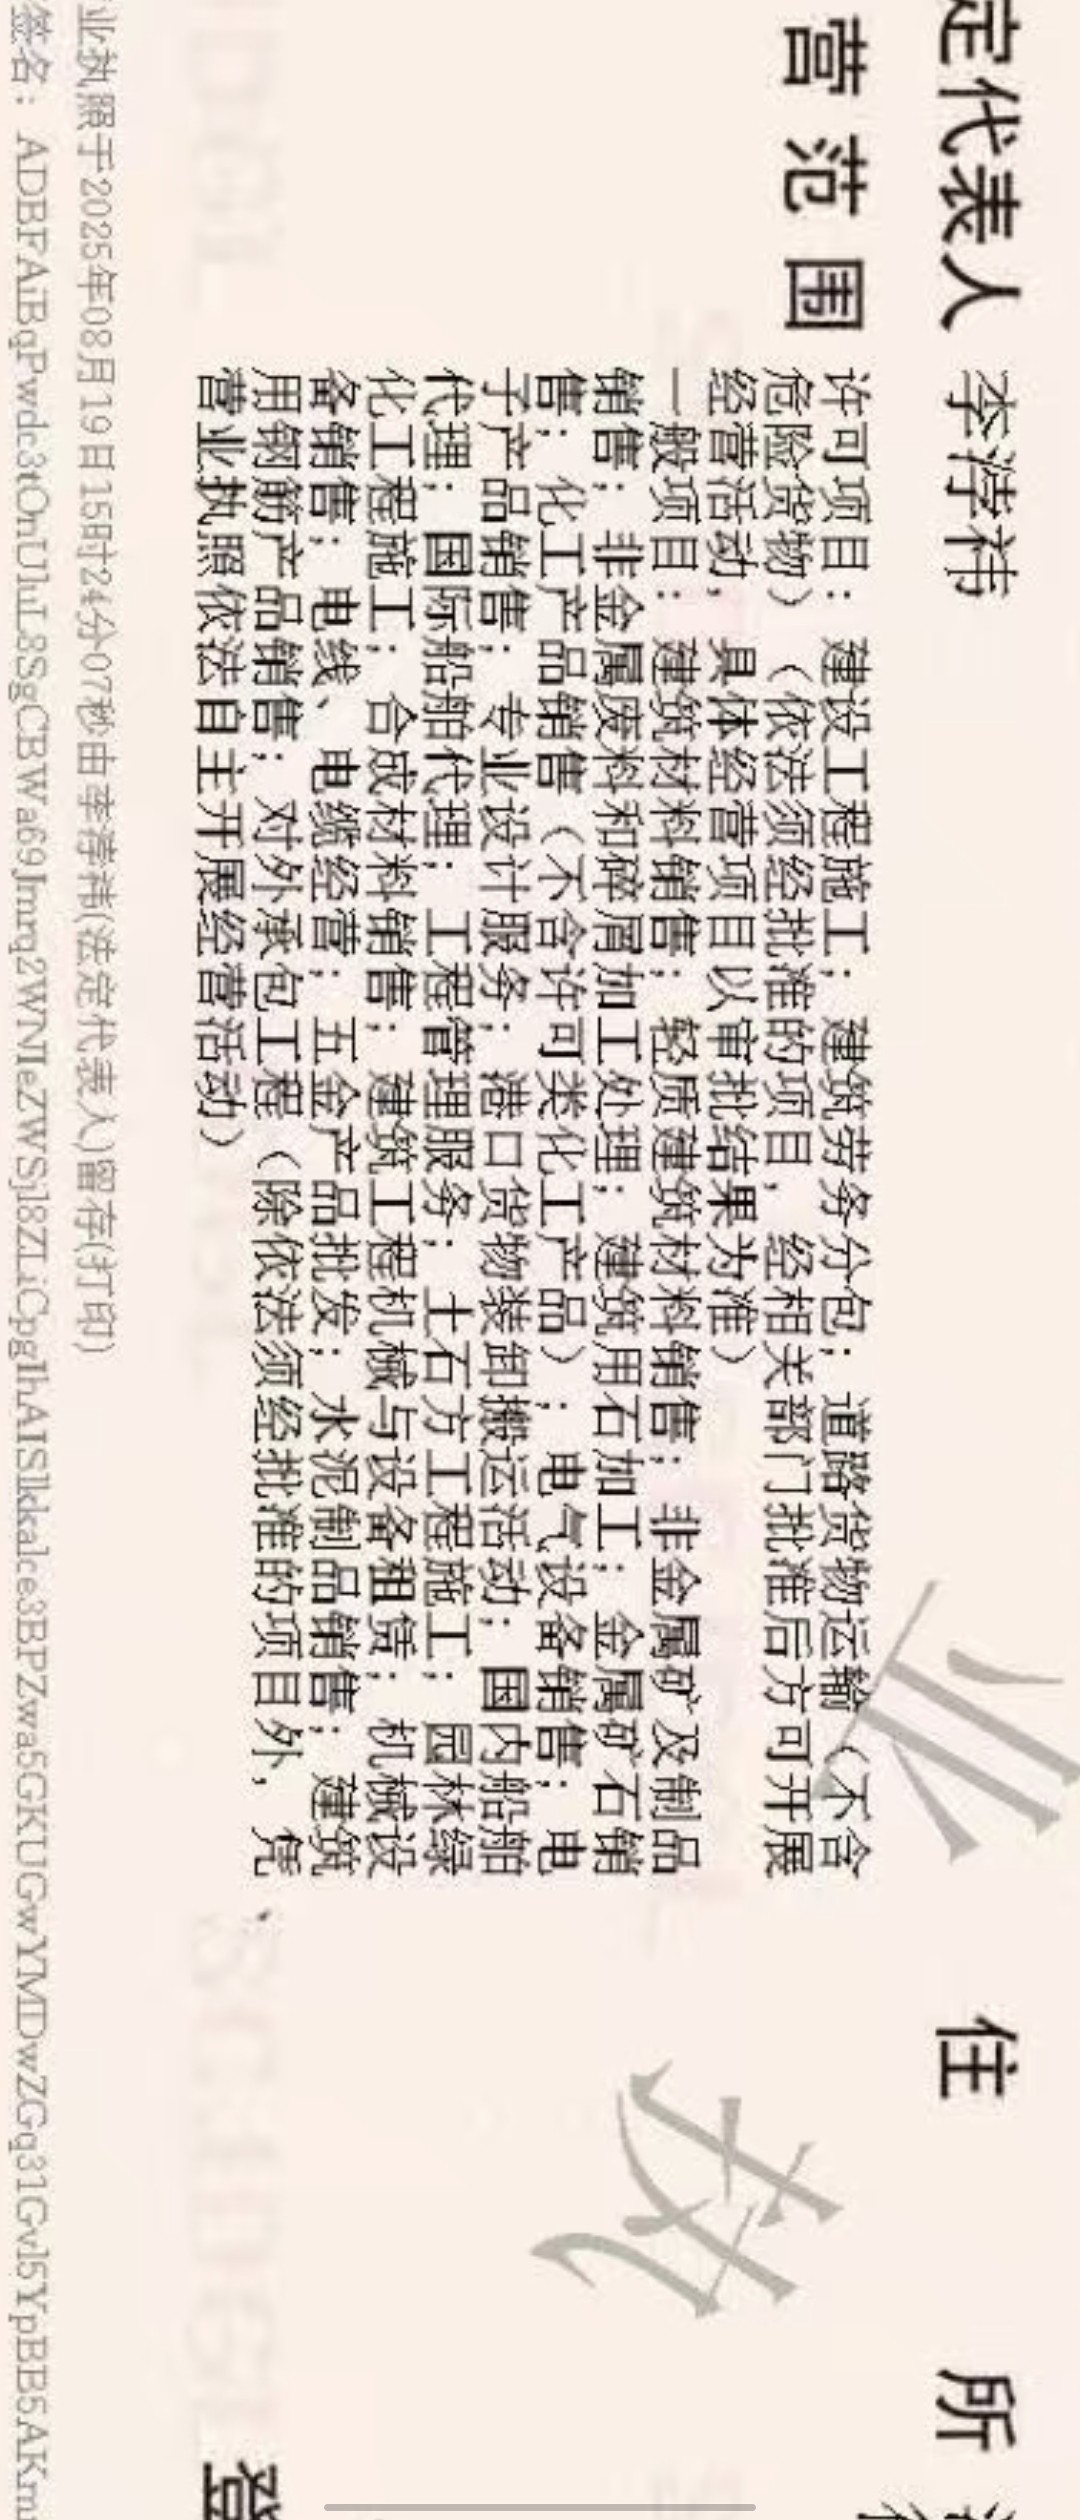 定代表人 李浡祎
营范围
许可项目：建设工程施工；建筑劳务分包；道路货物运输（不含
危险货物）（依法须经批准的项目，经相关部门批准后方可开展
经营活动，具体经营项目以审批结果为准）
一般项目：建筑材料销售；轻质建筑材料销售；非金属矿及制品
销售；非金属废料和碎屑加工处理；建筑用石加工；金属矿石销
售；化工产品销售（不含许可类化工产品）；电气设备销售；电
子产品销售；专业设计服务；港口货物装卸搬运活动；国内船舶
代理；国际船舶代理；工程管理服务；土石方工程施工；园林绿
化工程施工；合成材料销售；建筑工程机械与设备租赁；机械设
备销售；电线、电缆经营；五金产品批发；水泥制品销售；建筑
用钢筋产品销售；对外承包工程（除依法须经批准的项目外，凭
营业执照依法自主开展经营活动）
住所
登
业执
业执照于2025年08月19日15时24分07秒由李浡祎(法定代表人)留存(打印)
签名：ADBFAiBqPwdc3tOnUluL8SgCBWa69Jmrq2WNIeZWSjl8ZLiCpgIhAISlkkalce3BPZwa5GKUGwYMDwZGq31Gvl5YpBB5AKm